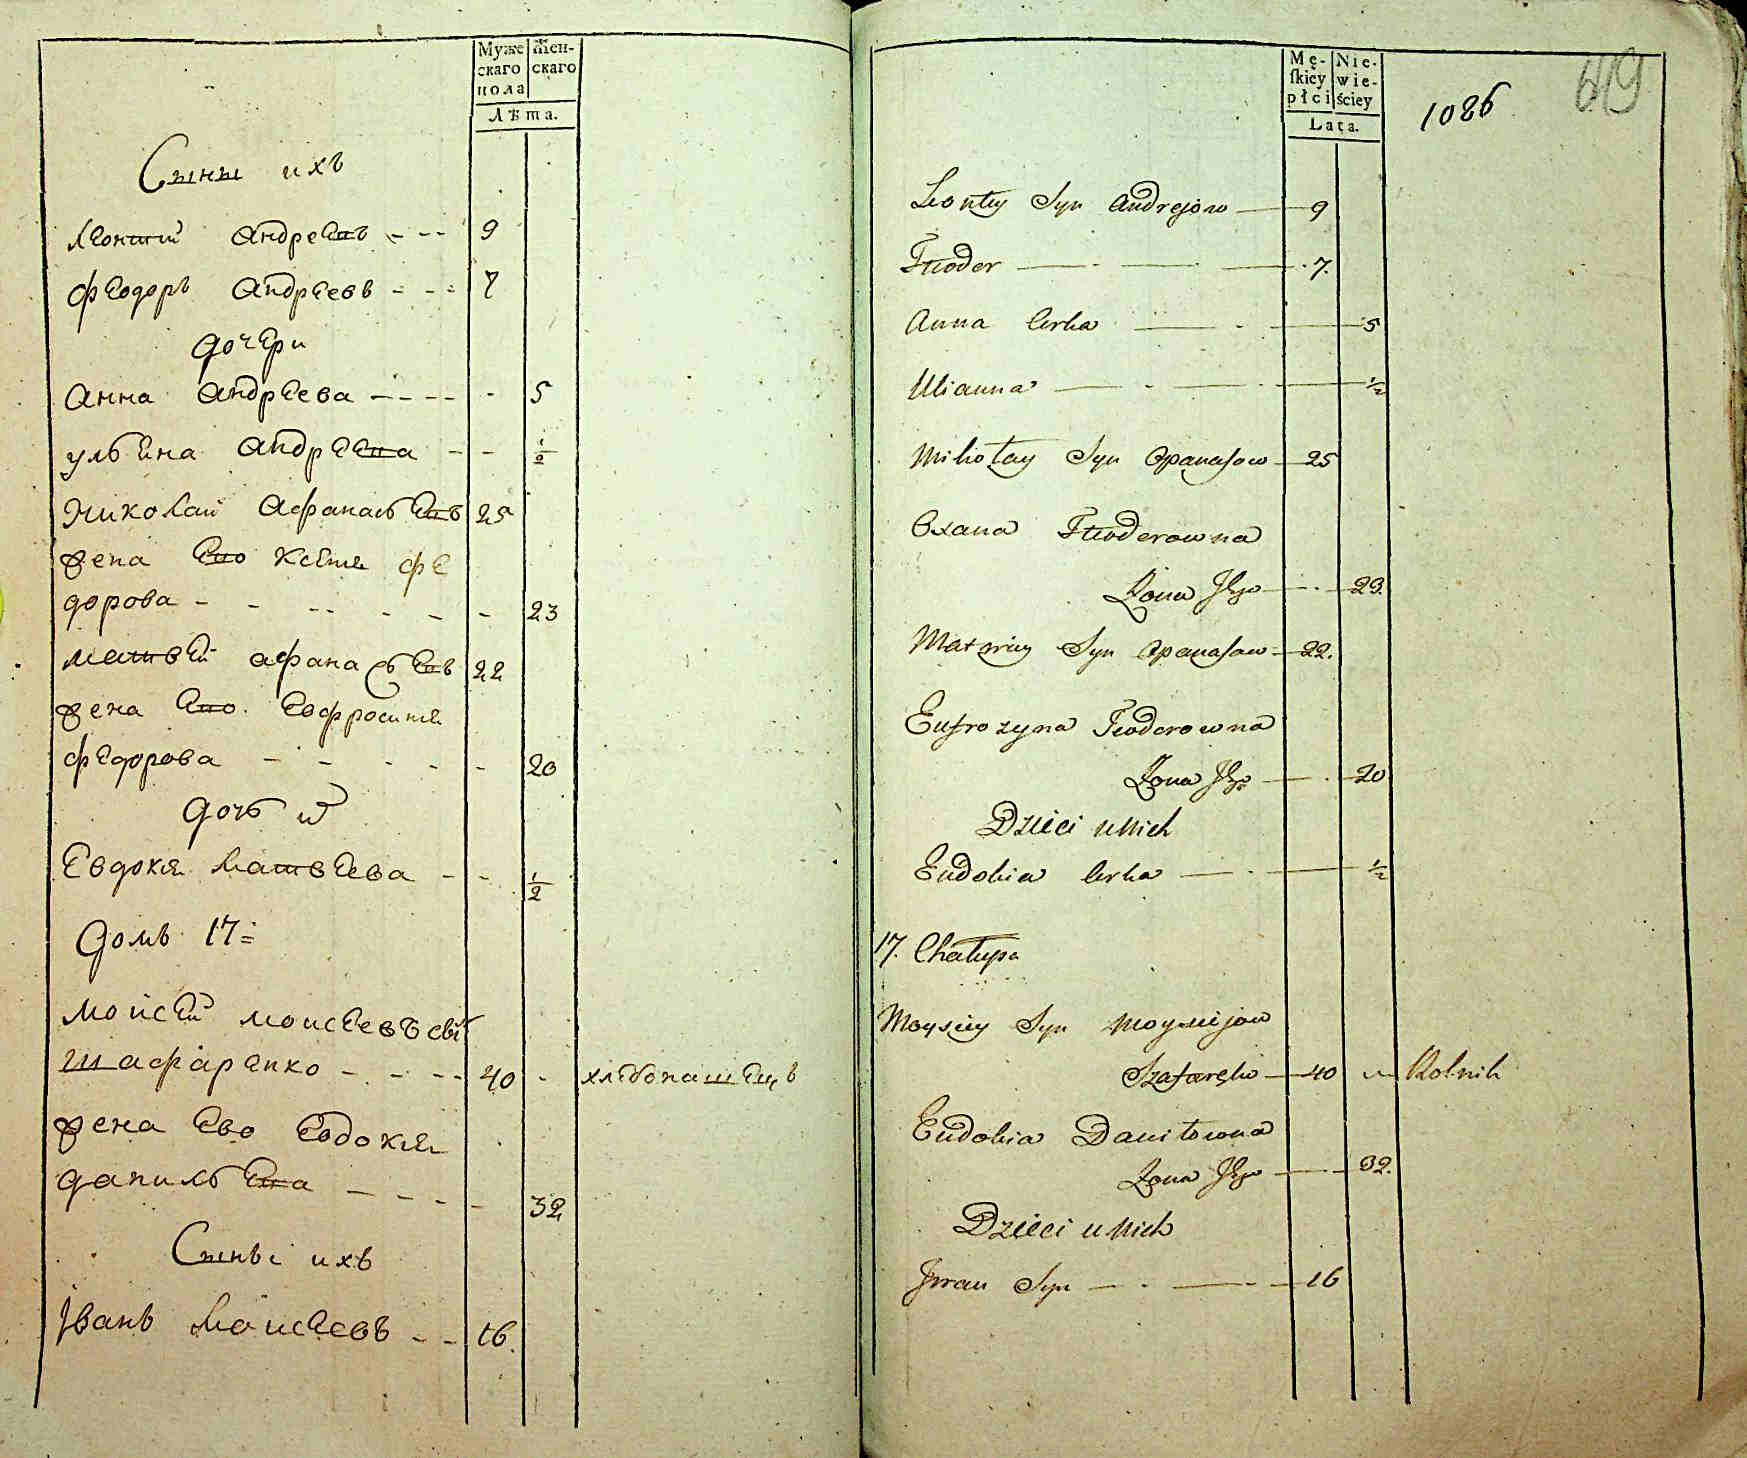 Муже Жен-
скаго скаго
пола
Лѣта.
Сыны ихъ
Леонтий Андреевъ - - - 9
Феодоръ Андреевъ - - - 7
дочери
Анна Андреева - - - - - 5
Ульяна Андреева - - 1/2
Николай Афанасьевъ 25
жена Ево Ксения Фе
дорова - - - - - - - 23
Матвей Афанасьевъ 22
жена Ево Евфросиния
Федорова - - - - - - 20
дочь их
Евдокия Матвеева - - 1/2
Домъ 17=
Мойсей Моисеевъ сынъ
Шафаренко - - - - 40 - хлебопашецъ
жена Ево Евдокия
Данильева - - - - - 32
Сыны ихъ
Іванъ Моисеевъ - - 16.
Mę- Nie-
ſkiey wie-
płci ściey
Lata.
1086
Leonty Syn Andrejow 9
Fteoder 7.
Anna Corka 5
Ulianna 1/2
Mikołay Syn Opanasow 25
Oxana Fteoderowna
Żona Jego 23.
Matwiey Syn Opanasow 22.
Eufrozyna Fteoderowna
Żona Jego 20
Dzieci u Nich
Eudokia Corka 1/2
17. Chałupa
Moysiey Syn Moysiejow
Szafaręko 40 Rolnik
Eudokia Daniłowna
Żona Jego 32.
Dzieci u Nich
Jwan Syn 16